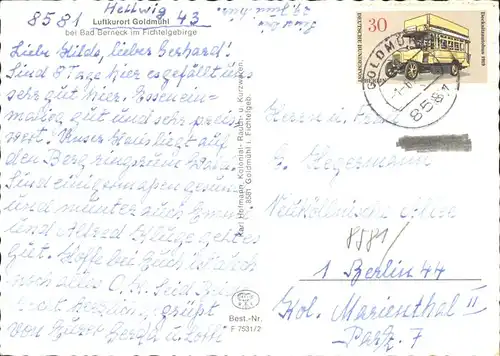 Hellwig
8581 43
Luftkurort Goldmühl
bei Bad Berneck im Fichtelgebirge
Liebe Hilde, lieber Gerhard!
Sind 8 Tage hier es gefällt uns
sehr gut hier. Essen ein-
malig gut und sehr preis-
wert. Unser Haus liegt auf
den Berg ringsrum Wald.
Sind einigermaßen gesund
und munter auch
und Alfred Kluge geht es
gut. Hoffe bei Euch ist auch
noch
grüßt
von Eurer Gerda u. Lotti
Karl Hofmann, Kolonial-, Rauch- u. Kurzwaren,
8581 Goldmühl i. Fichtelgeb.
Best.-Nr.
F 7531/2
30
DEUTSCHE BUNDESPOST
BERLIN
GOLDMÜHL
8581
Herrn u. Frau
G. Hegermann
Neuköllnische Allee
8581/
1 Berlin 44
Kol. Marienthal II
Parz. 7